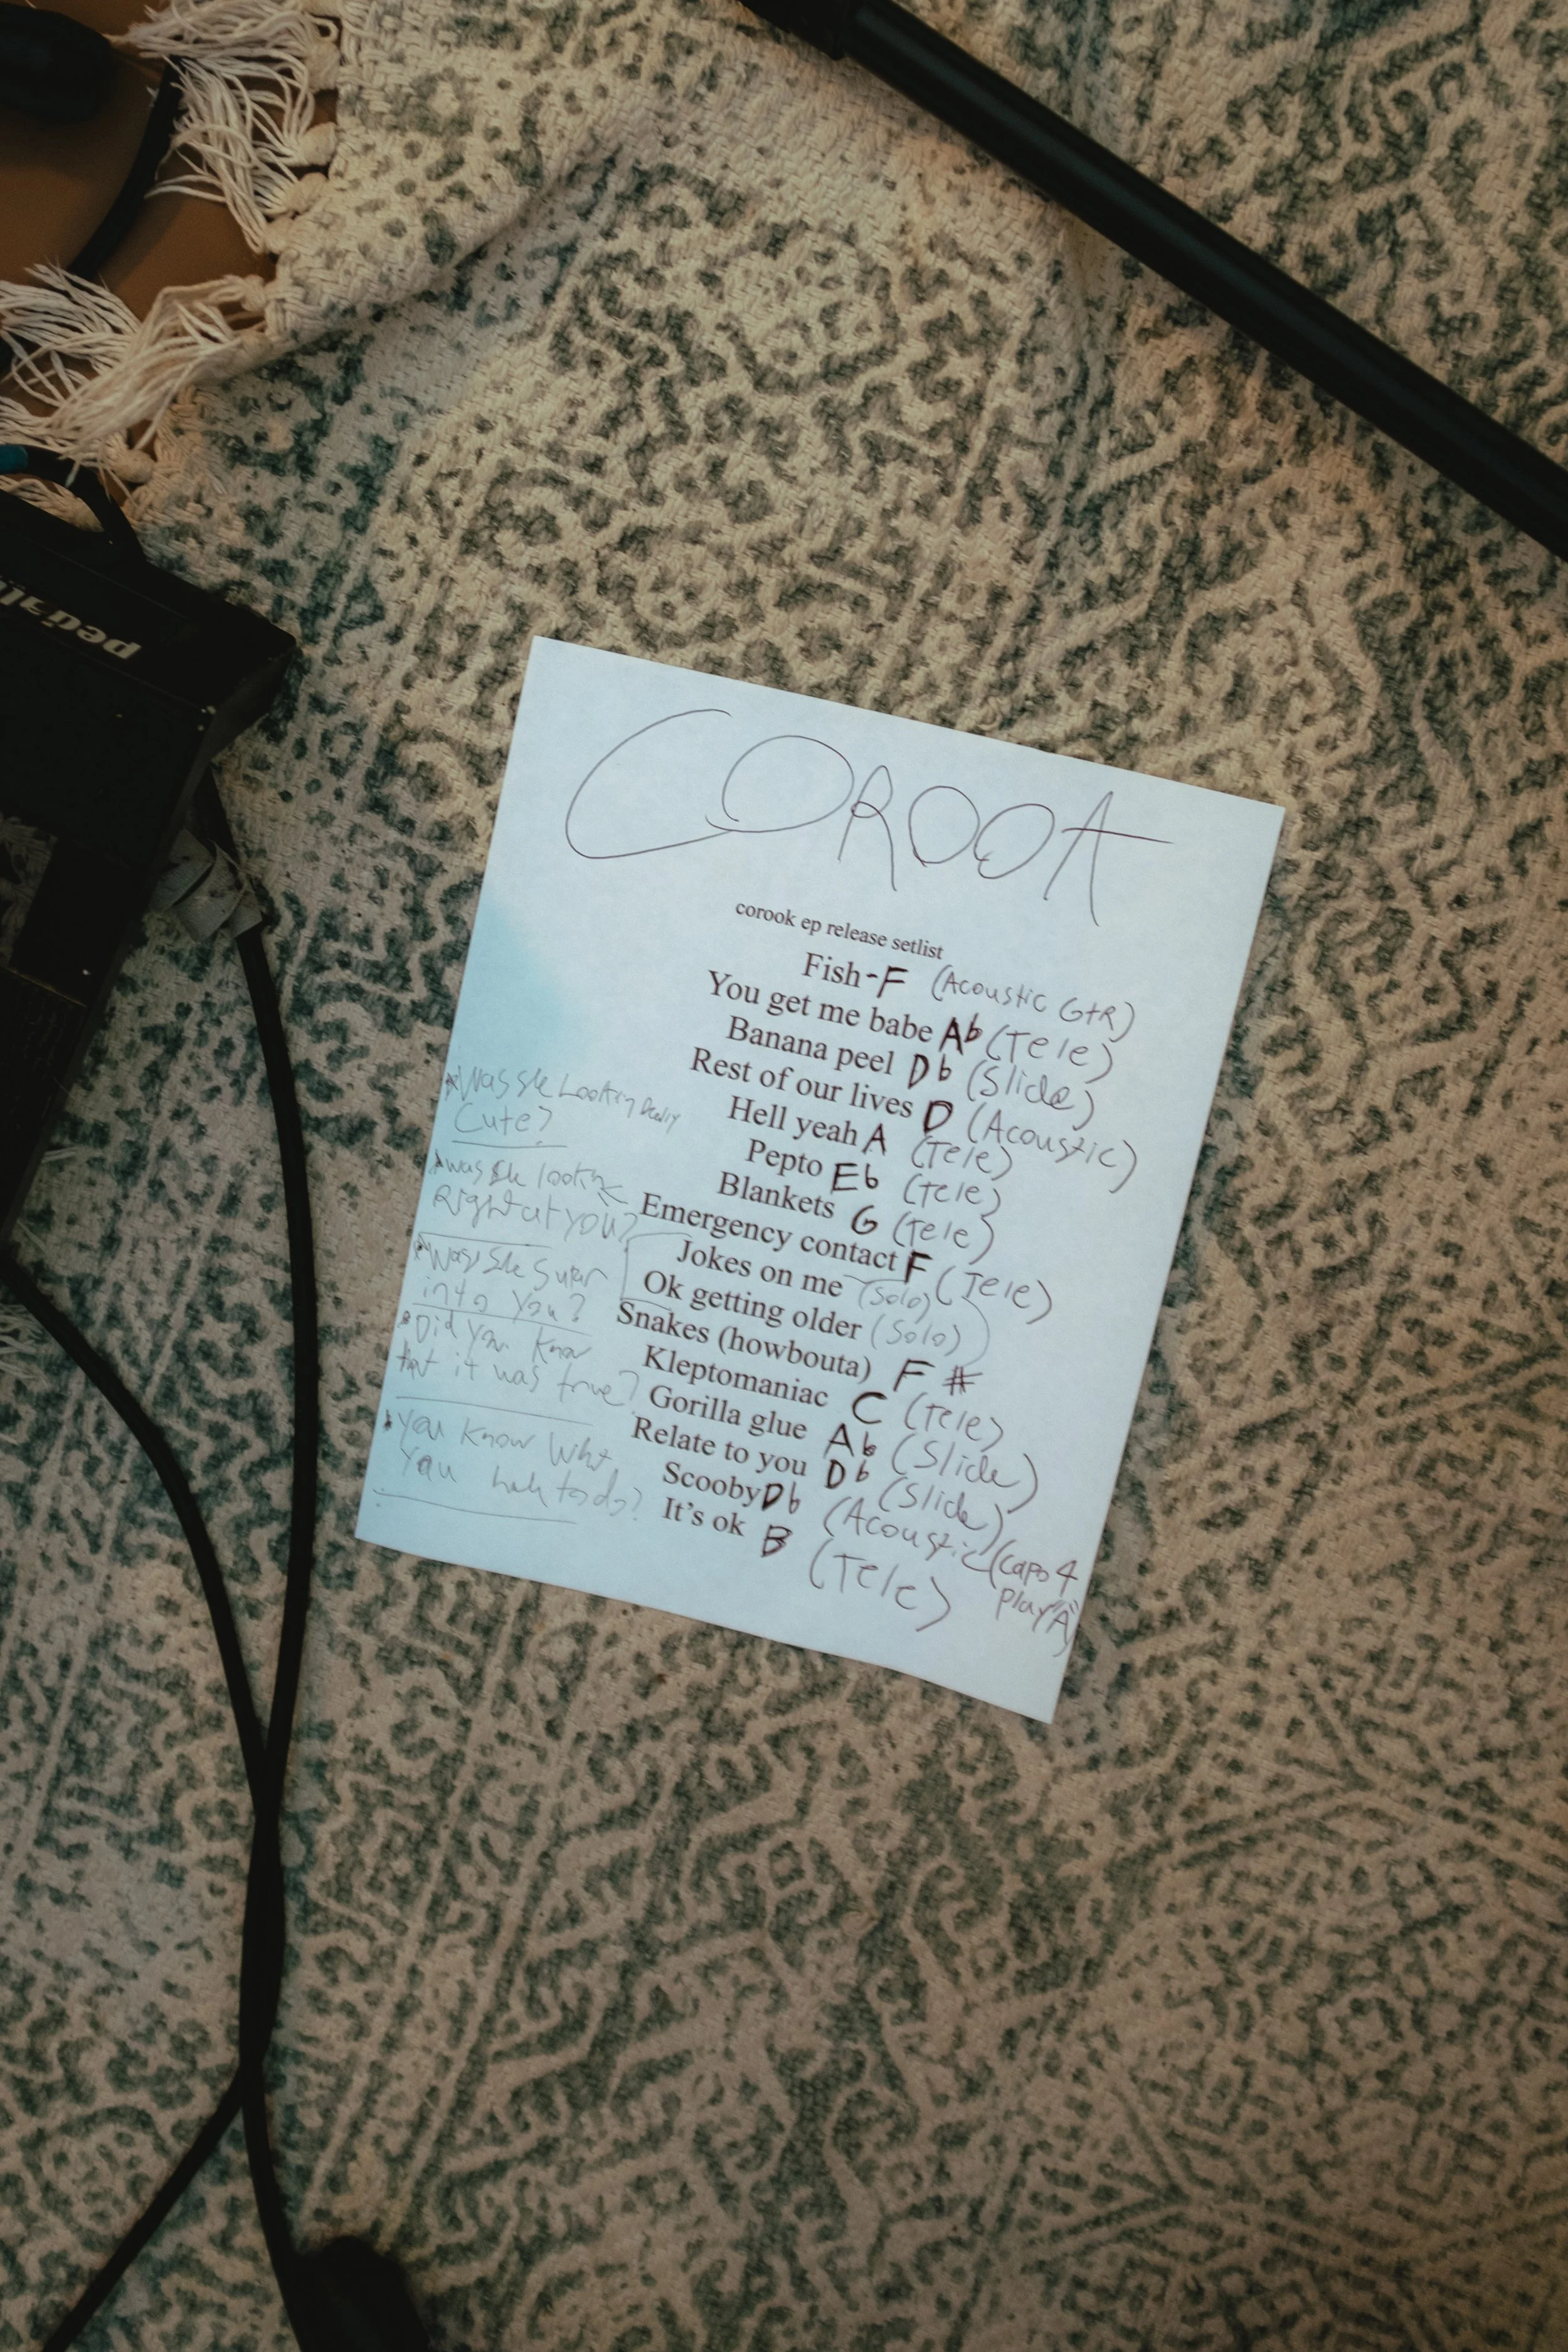 COROOK
corook ep release setlist
Fish - F (Acoustic GtR)
You get me babe Ab (Tele)
Banana peel Db (Slide)
Rest of our lives D (Acoustic)
Hell yeah A (Tele)
Pepto Eb (Tele)
Blankets G (Tele)
Emergency contact F (Tele)
Jokes on me (Solo)
Ok getting older (Solo)
Snakes (howbouta) F #
Kleptomaniac C (Tele)
Gorilla glue Ab (Slide)
Relate to you Db (Slide)
Scooby Db (Acoustic) (capo 4
play "A")
It's ok B (Tele)
* Was she Looking Really
Cute?
* was she lookin
Right at you?
* Was she super
into you?
* Did you know
that it was true?
* you know what
you have to do?